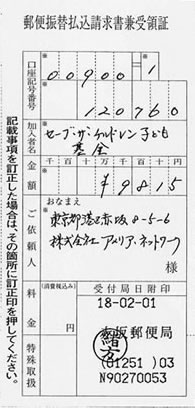 郵便振替払込請求書兼受領証
口座記号番号
00900 1
120760
加入者名
セーブ・ザ・チルドレン子ども
基金
金額
千百十万千百十円
¥9815
ご依頼人
おなまえ
東京都港区赤坂8-5-6
株式会社アメリア・ネットワーク
様
料金
(消費税込み)
特殊取扱
受付局日附印
18-02-01
赤坂郵便局
緒方
(01251)03
N90270053
記載事項を訂正した場合は、その箇所に訂正印を押してください。